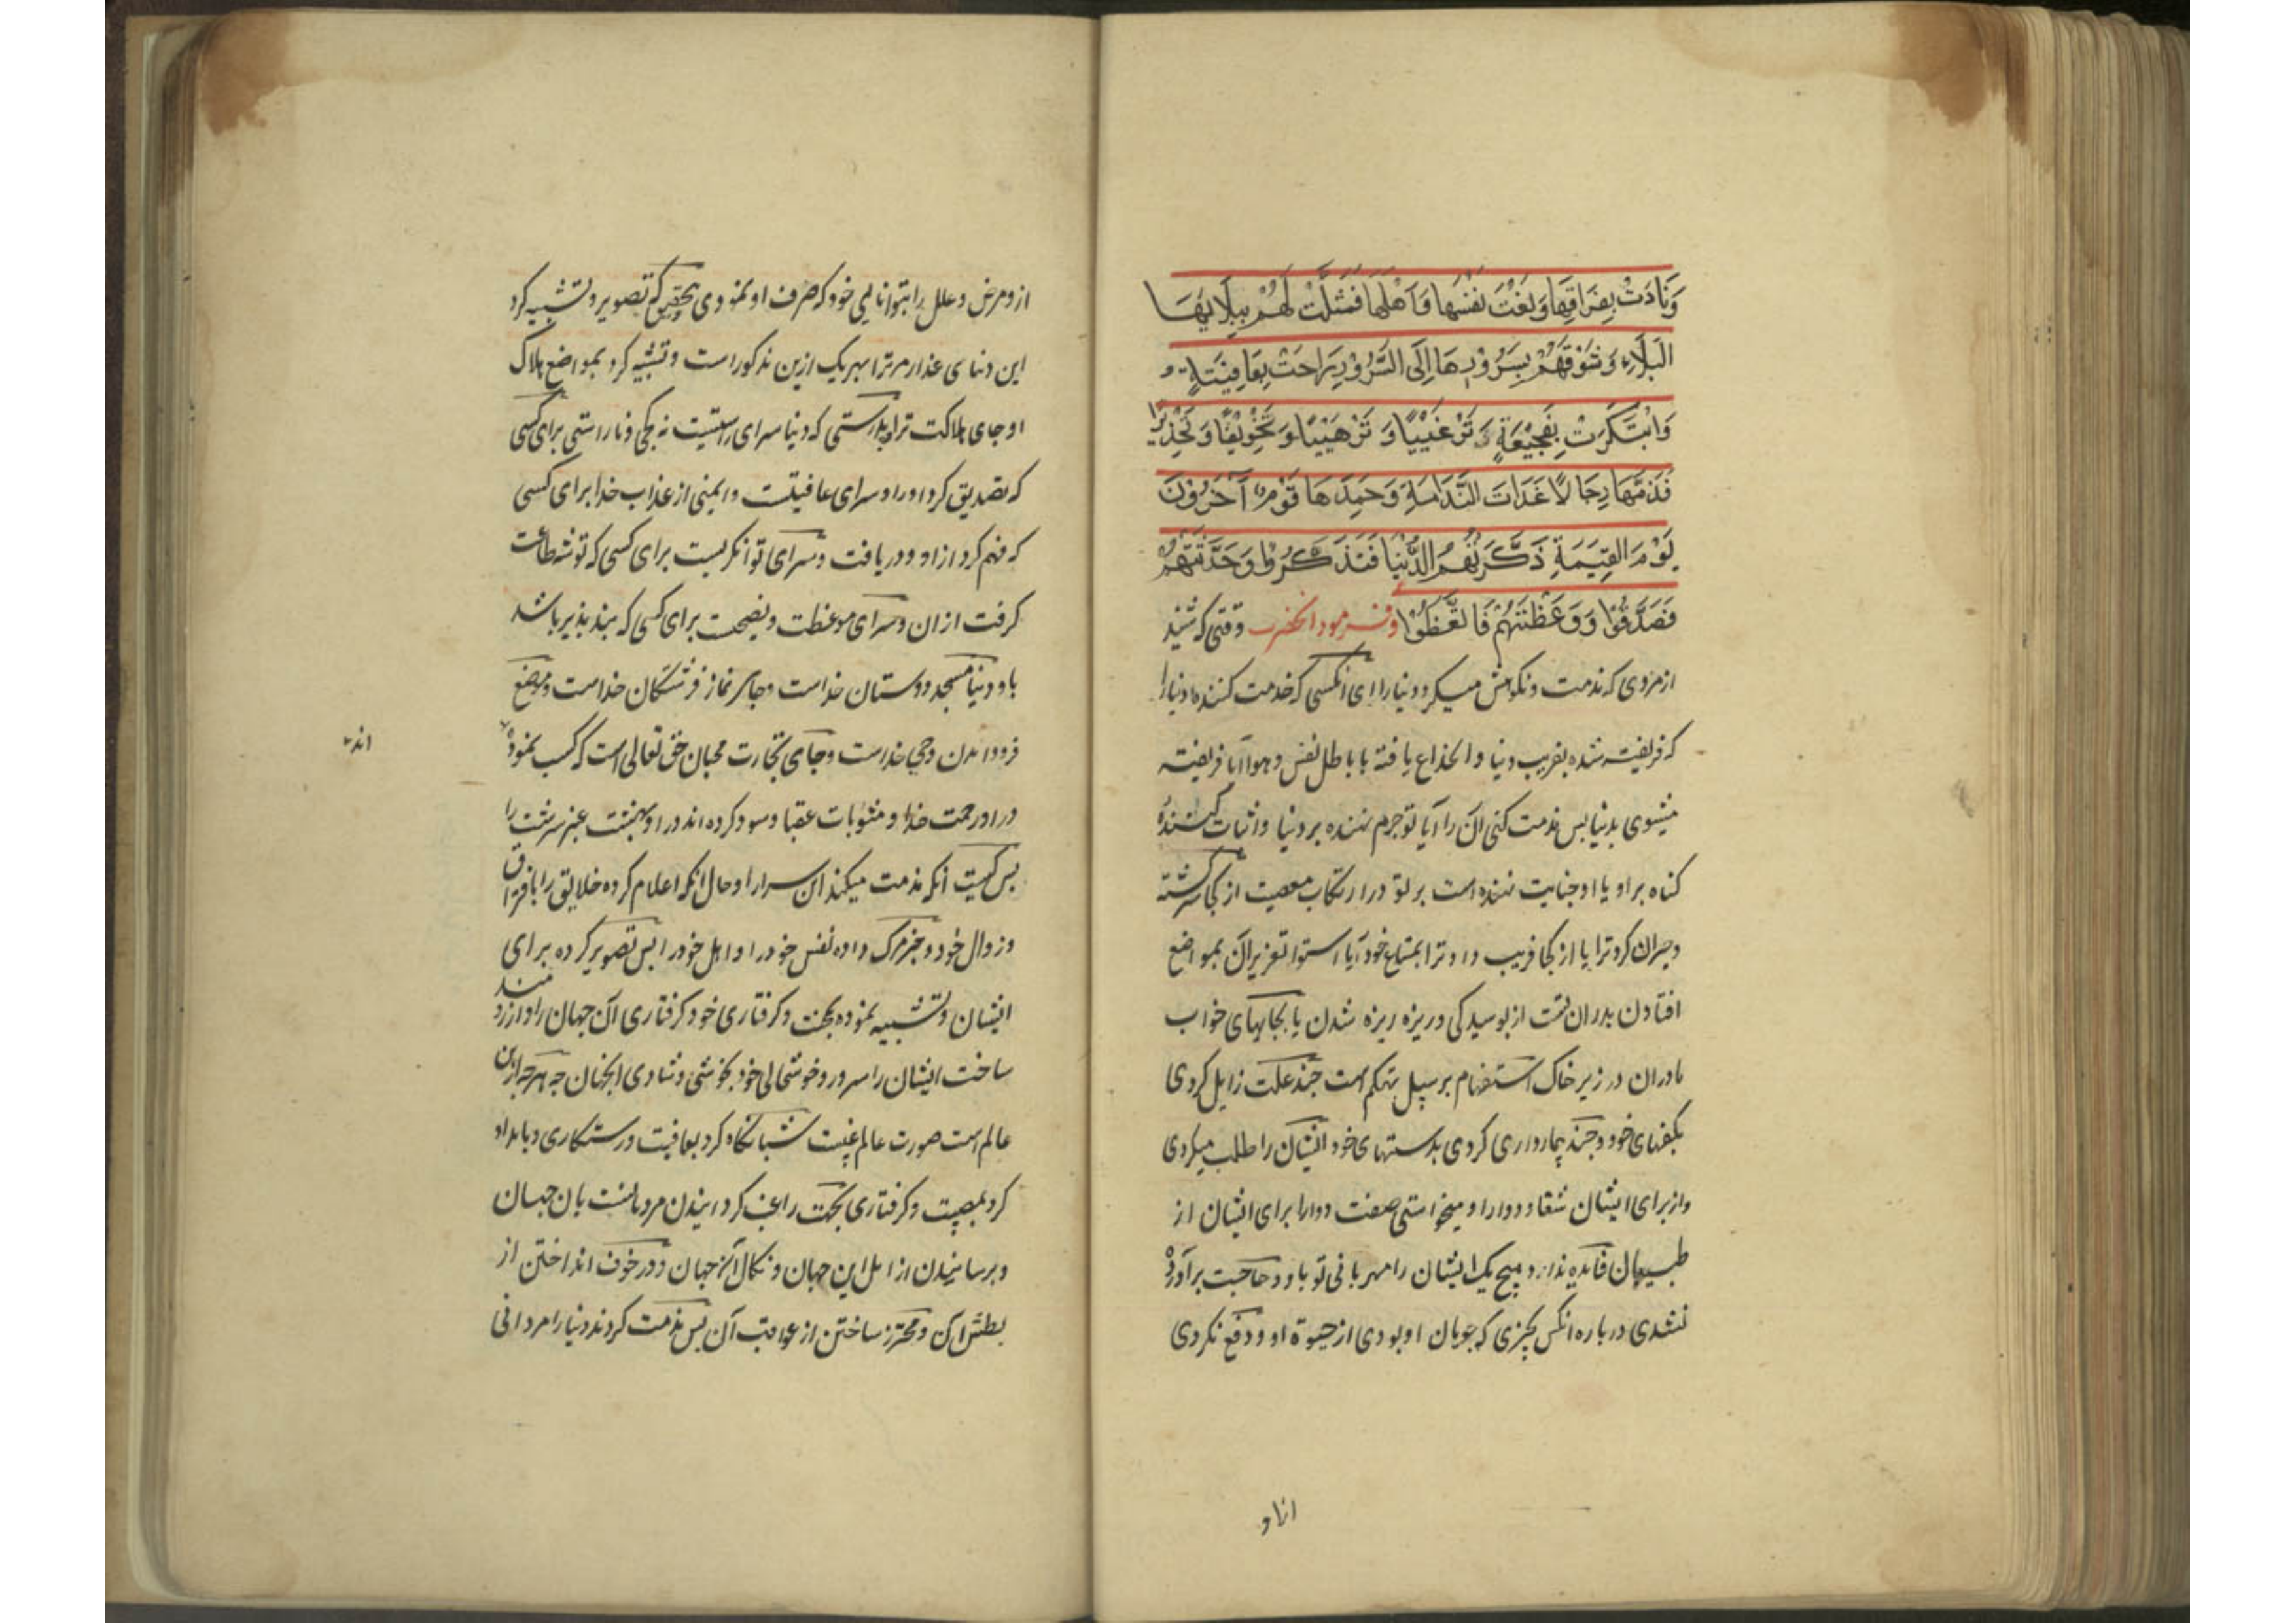 وَنَادَتْ بِفِرَاقِهَا وَنَعَتْ نَفْسَهَا وَاَهْلَهَا فَمَثَّلَتْ لَهُمْ بِبَلَائِهَا
الْبَلَاءَ وَشَوَّقَتْهُمْ بِسُرُوْرِهَا اِلَى السُّرُوْرِ رَاحَتْ بِعَافِيَتِةٍ و
وَابْتَكَرَتْ بِفَجِيْعَةٍ تَرْغِيْبًا وَ تَرْهِيْبًا وَ تَخْوِيْفًا وَ تَحْذِيْرًا
فَذَمَّهَا رِجَالًا غَدَاتَ النَّدَامَةِ وَحَمِدَهَا قَوْمٌ آخَرُوْنَ
يَوْمَ الْقِيٰمَةِ ذَكَّرَتْهُمُ الدُّنْيَا فَتَذَكَّرُوْا وَحَدَّثَتْهُمْ
فَصَدَّقُوْا وَوَعَظَتْهُمْ فَاتَّعَظُوْا وفرمود انحضرت وقتی که شنید
ازمردی که مذمت ونکوهش میکرد دنیارا ای انکسی که خدمت کننده دنیارا
که فریفته شده بفریب دنیا وانخداع یافته باباطل نفس وهوا آیا فریفته
میشوی بدنیا بس مذمت کنی ان را آیا تو جرم نهنده بر دنیا واثبات کننده
کناه براو یا اوجنایت نهنده است برتو درارتکاب معصیت از کجا سرکشته
وحیران کرد ترا یا از کجا فریب داد ترا بمتاع خود آیا بمواضع
افتادن بدرانت از بوسیدکی وریزه ریزه شدن یا بجایهای خواب
مادران در زیر خاک استفهام برسبیل تهکم است چند علت زایل کردی
بکفهای خود وچند بیمارداری کردی بدستهای خود ایشان را طلب میکردی
واز برای ایشان شفا ودوارا ومیخواستی صفت دوارا برای ایشان از
طبیبان فایده نداد هیچ یک ایشان را مهربانی تو باو وحاجت برآورده
نشدی درباره انکس بچیزی که جویان اوبودی از حیوة او ودفع نکردی
ازاو
ازومرض وعلل را بتوانائی خود که صرف اونمودی بتحقیق که تصویر وتشبیه کرد
این دنیای غدار مرترا بهریک ازین مذکوراست وتشبیه کرد بمواضع هلاک
اوجای هلاکت ترا بدرستی که دنیا سرای راستیست نه کجی وناراستی برای کسی
که تصدیق کرد اورا وسرای عافیتست وایمنی ازعذاب خدا برای کسی
که فهم کرد ازاو ودریافت وسرای توانکریست برای کسی که توشه طاعت
کرفت ازان وسرای موعظت ونصیحت برای کسی که بند بذیر باشد
باو دنیا مسجد دوستان خداست وجای نماز فرشتکان خداست وموضع
فرودامدن وحی خداست وجای تجارت محبان حق تعالی است که کسب نموده
اند
دراو رحمت خدا ومثوبات عقبا وسود کرده اند دراو بهشت عنبر سرشت را
بس کیست آنکه مذمت میکند این سرارا وحال آنکه اعلام کرده خلایق را بافتراق
وزوال خود وخبر مرک داده نفس خودرا واهل خودرا بس تصویر کرده برای
ایشان وتشبیه نموده بمحنت وکرفتاری خود کرفتاری آن جهان را وارزومند
ساخت ایشان را بسرور وخوشحالی خود بخوشی وشادی انجهان چه هرچه درین
عالم است صورت عالم غیبست شبانکاه کرد بعافیت ورستکاری وبامداد
کرد بمصیبت وکرفتاری بجهت راغب کردانیدن مردمانست بان جهان
وبترسانیدن از این جهان ونکال آن جهان ودر خوف انداختن از
بطش آن ومحترز ساختن از عواقب آن بس مذمت کردند دنیارا مردانی